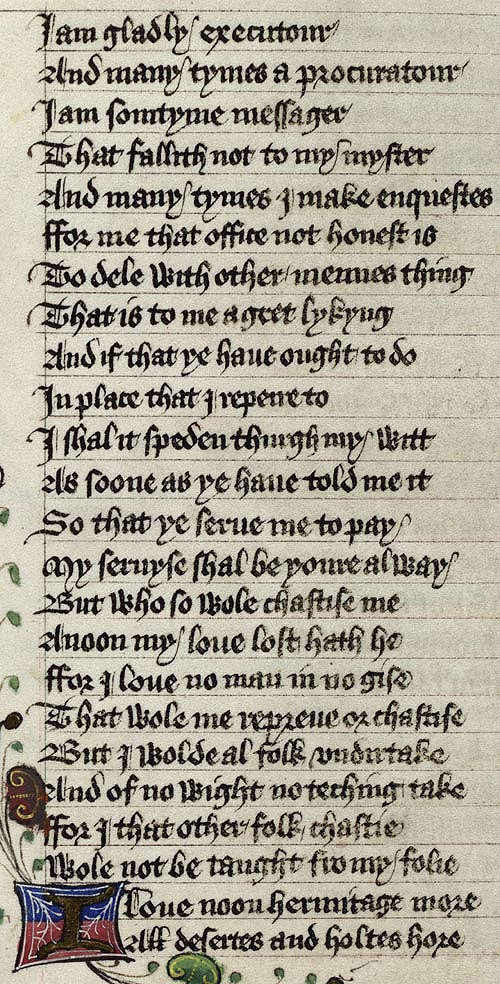 I am gladly executour
And many tymes a procuratour
I am somtyme messager
That fallith not to my myster
And many tymes I make enquestes
ffor me that office not honest is
To dele with other mennes thing
That is to me a gret lykyng
And if that ye haue ought to do
In place that I repeire to
I shal it speden thurgh my witt
As soone as ye haue told me it
So that ye serue me to pay
My seruyse shal be youre alway
But who so wole chastise me
Anoon my loue lost hath he
ffor I loue no man in no gise
That wole me repreue or chastise
But I wolde al folk vndirtake
And of no wight no teching take
ffor I that other folk chastie
Wole not be taught fro my folie
I Loue noon hermitage more
All desertes and holtes hore